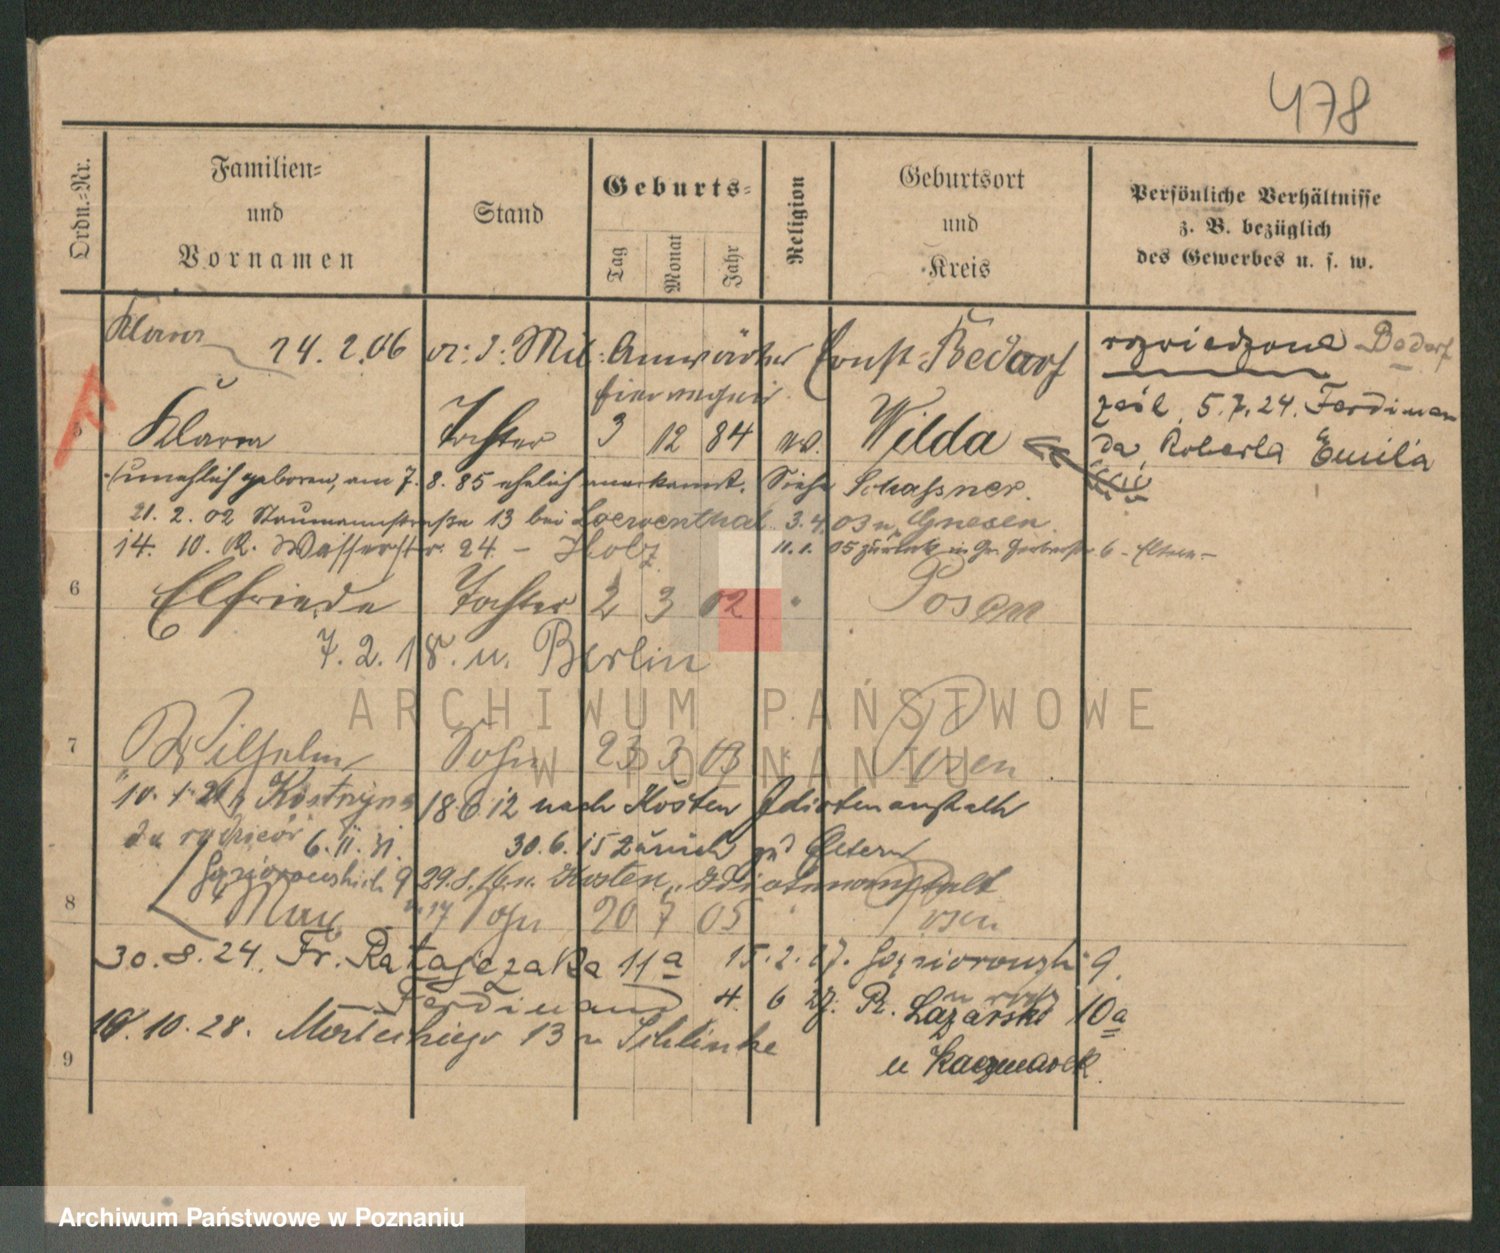 478
Ordn.-Nr.
Familien-
und
Vornamen
Stand
Geburts-
Tag
Monat
Jahr
Religion
Geburtsort
und
Kreis
Persönliche Verhältnisse
z. B. bezüglich
des Gewerbes u. s. w.
Klara 24.2.06 Mil. Anwärter Ernst Bedarf
hier
rozwiedzona Bedarf
zaśl. 5.7.24. Ferdinan
da Roberta Emila
5 Klara Tochter 3 12 84 ev. Wilda
unehlich geboren, am 7.8.85 ehelich anerkannt. Siehe Schaffner.
21.2.02 Naumannstraße 13 bei Loewenthal 3.4.03 n. Gnesen.
14.10.02. Wasserstr. 24 - Holz 11.1.05 zurück in Gr. Gerberstr 6 - Eltern -
6 Elfriede Tochter 2 3 02 " Posen
7.2.18. n. Berlin
7 Wilhelm Sohn 23 3 03 " Posen
18.6.12 nach Kosten Idiotenanstalt
6.11.21. 30.6.15 zurück zu Eltern
Gąsiorowskich 9 29.8.16 n. Kosten, Idiotenanstalt
8 Max Sohn 20 7 05 " Posen
30.8.24. Fr. Ratajczaka 11a 15.2.27. Gąsiorowskich 9.
Ferdinand 4. 6 27. R. Łazarski 10a
10.28. Marleckiego 13 n Schlinke
u Kaczmarek
9
ARCHIWUM PAŃSTWOWE
W POZNANIU
Archiwum Państwowe w Poznaniu